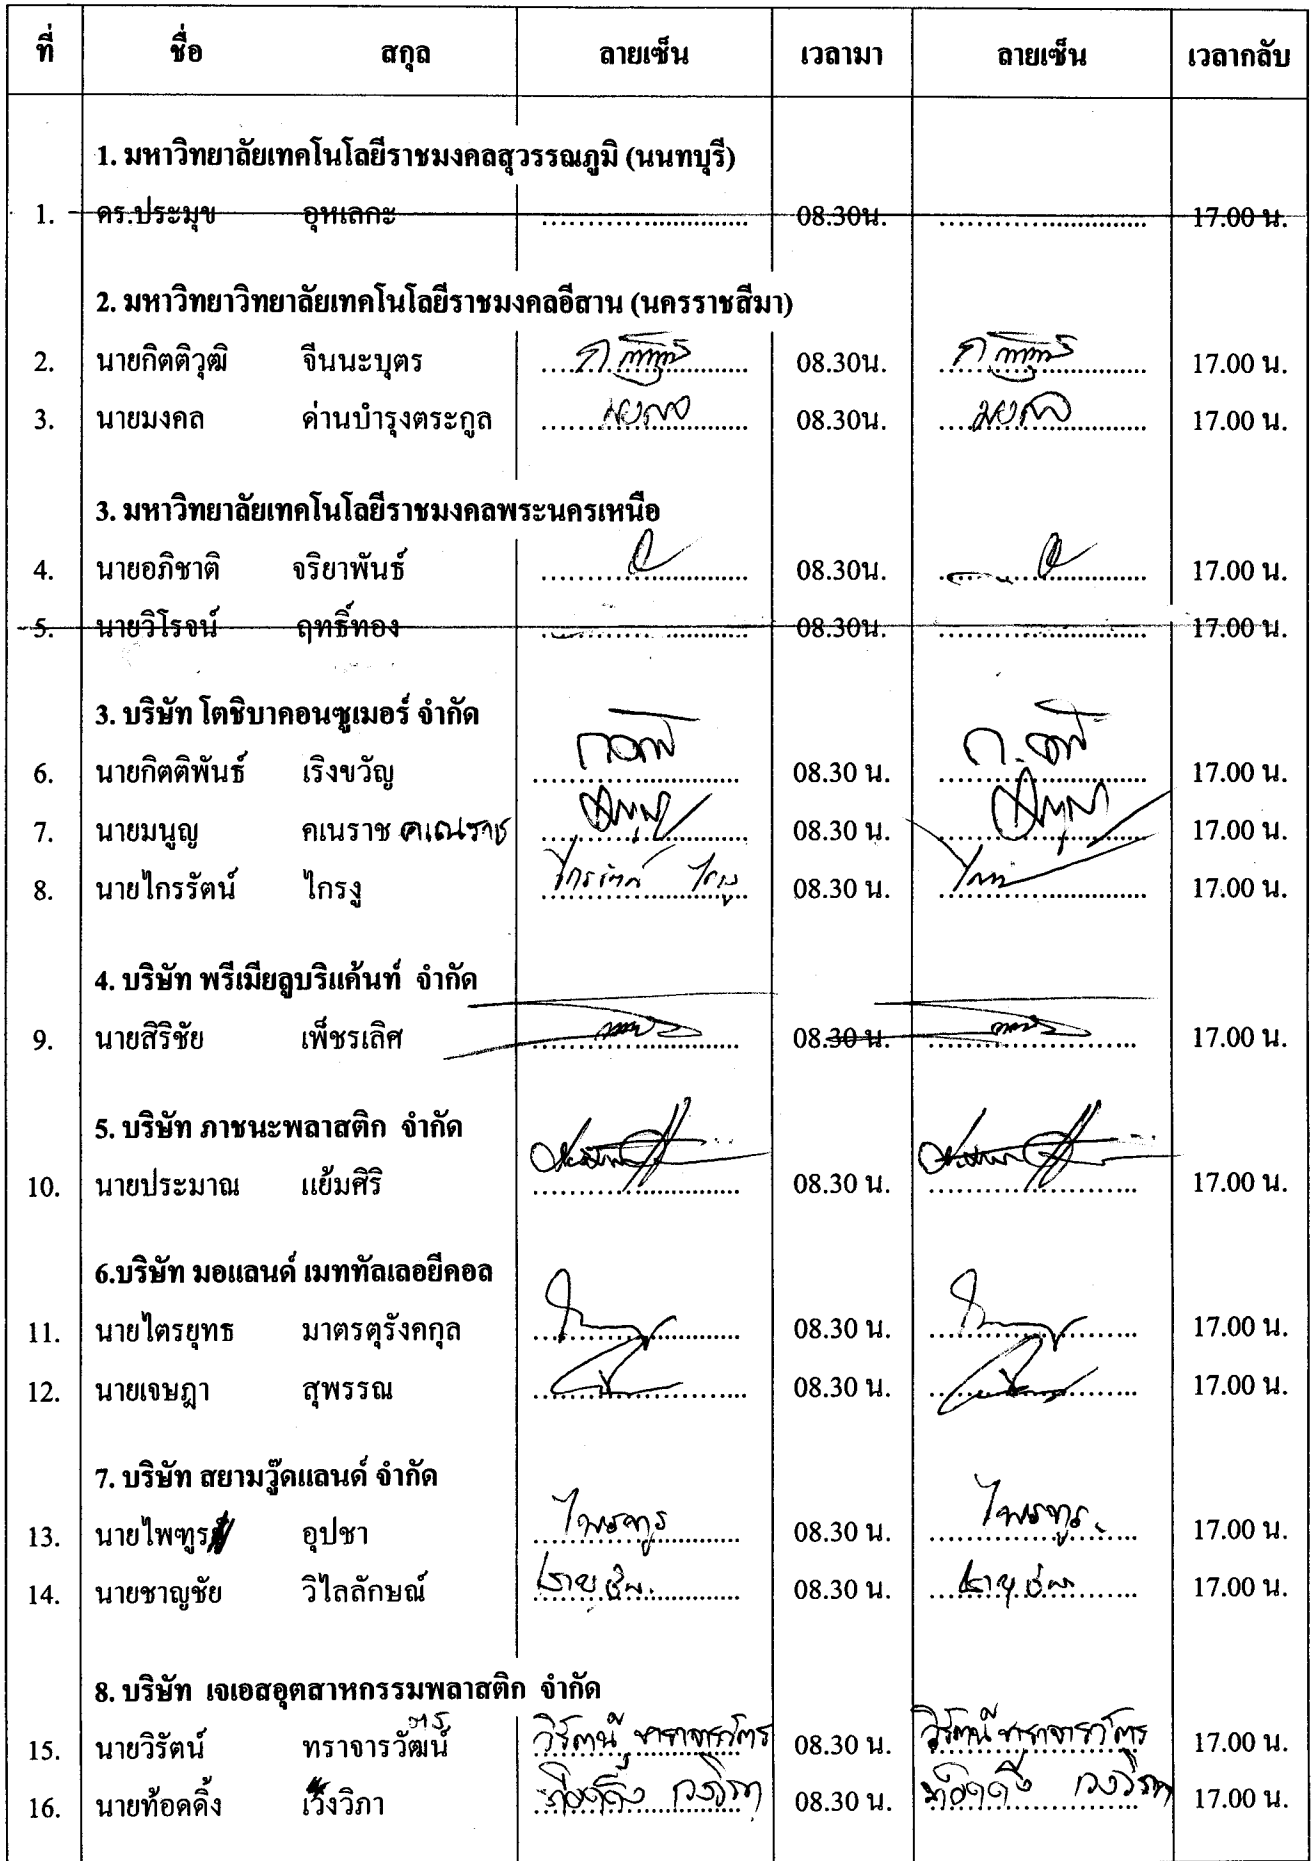 ที่ ชื่อ สกุล ลายเซ็น เวลามา ลายเซ็น เวลากลับ
1. มหาวิทยาลัยเทคโนโลยีราชมงคลสุวรรณภูมิ (นนทบุรี)
1. ดร.ประมุข อุหเลกะ .......................... 08.30น. .......................... 17.00 น.
2. มหาวิทยาวิทยาลัยเทคโนโลยีราชมงคลอีสาน (นครราชสีมา)
2. นายกิตติวุฒิ จีนนะบุตร 08.30น. 17.00 น.
3. นายมงคล ด่านบำรุงตระกูล มงคล 08.30น. มงคล 17.00 น.
3. มหาวิทยาลัยเทคโนโลยีราชมงคลพระนครเหนือ
4. นายอภิชาติ จริยาพันธ์ 08.30น. 17.00 น.
5. นายวิโรจน์ ฤทธิ์ทอง .......................... 08.30น. .......................... 17.00 น.
3. บริษัท โตชิบาคอนซูเมอร์ จำกัด
6. นายกิตติพันธ์ เริงขวัญ 08.30 น. 17.00 น.
7. นายมนูญ คเนราช คเณราช 08.30 น. 17.00 น.
8. นายไกรรัตน์ ไกรงู ไกรรัตน์ ไกรงู 08.30 น. 17.00 น.
4. บริษัท พรีเมียลูบริแค้นท์ จำกัด
9. นายสิริชัย เพ็ชรเลิศ 08.30 น. 17.00 น.
5. บริษัท ภาชนะพลาสติก จำกัด
10. นายประมาณ แย้มศิริ 08.30 น. 17.00 น.
6.บริษัท มอแลนด์ เมททัลเลอยีคอล
11. นายไตรยุทธ มาตรตุรังคกุล 08.30 น. 17.00 น.
12. นายเจษฎา สุพรรณ 08.30 น. 17.00 น.
7. บริษัท สยามวู๊ดแลนด์ จำกัด
13. นายไพฑูร อุปชา ไพฑูร 08.30 น. ไพฑูร 17.00 น.
14. นายชาญชัย วิไลลักษณ์ ชาญชัย 08.30 น. ชาญชัย 17.00 น.
8. บริษัท เจเอสอุตสาหกรรมพลาสติก จำกัด
15. นายวิรัตน์ ทราจารวัฒน์ ตร วิรัตน์ ทราจารวัตร 08.30 น. วิรัตน์ ทราจารวัตร 17.00 น.
16. นายท้อดดิ้ง เว็งวิภา ท้อดดิ้ง 08.30 น. ท้อดดิ้ง 17.00 น.